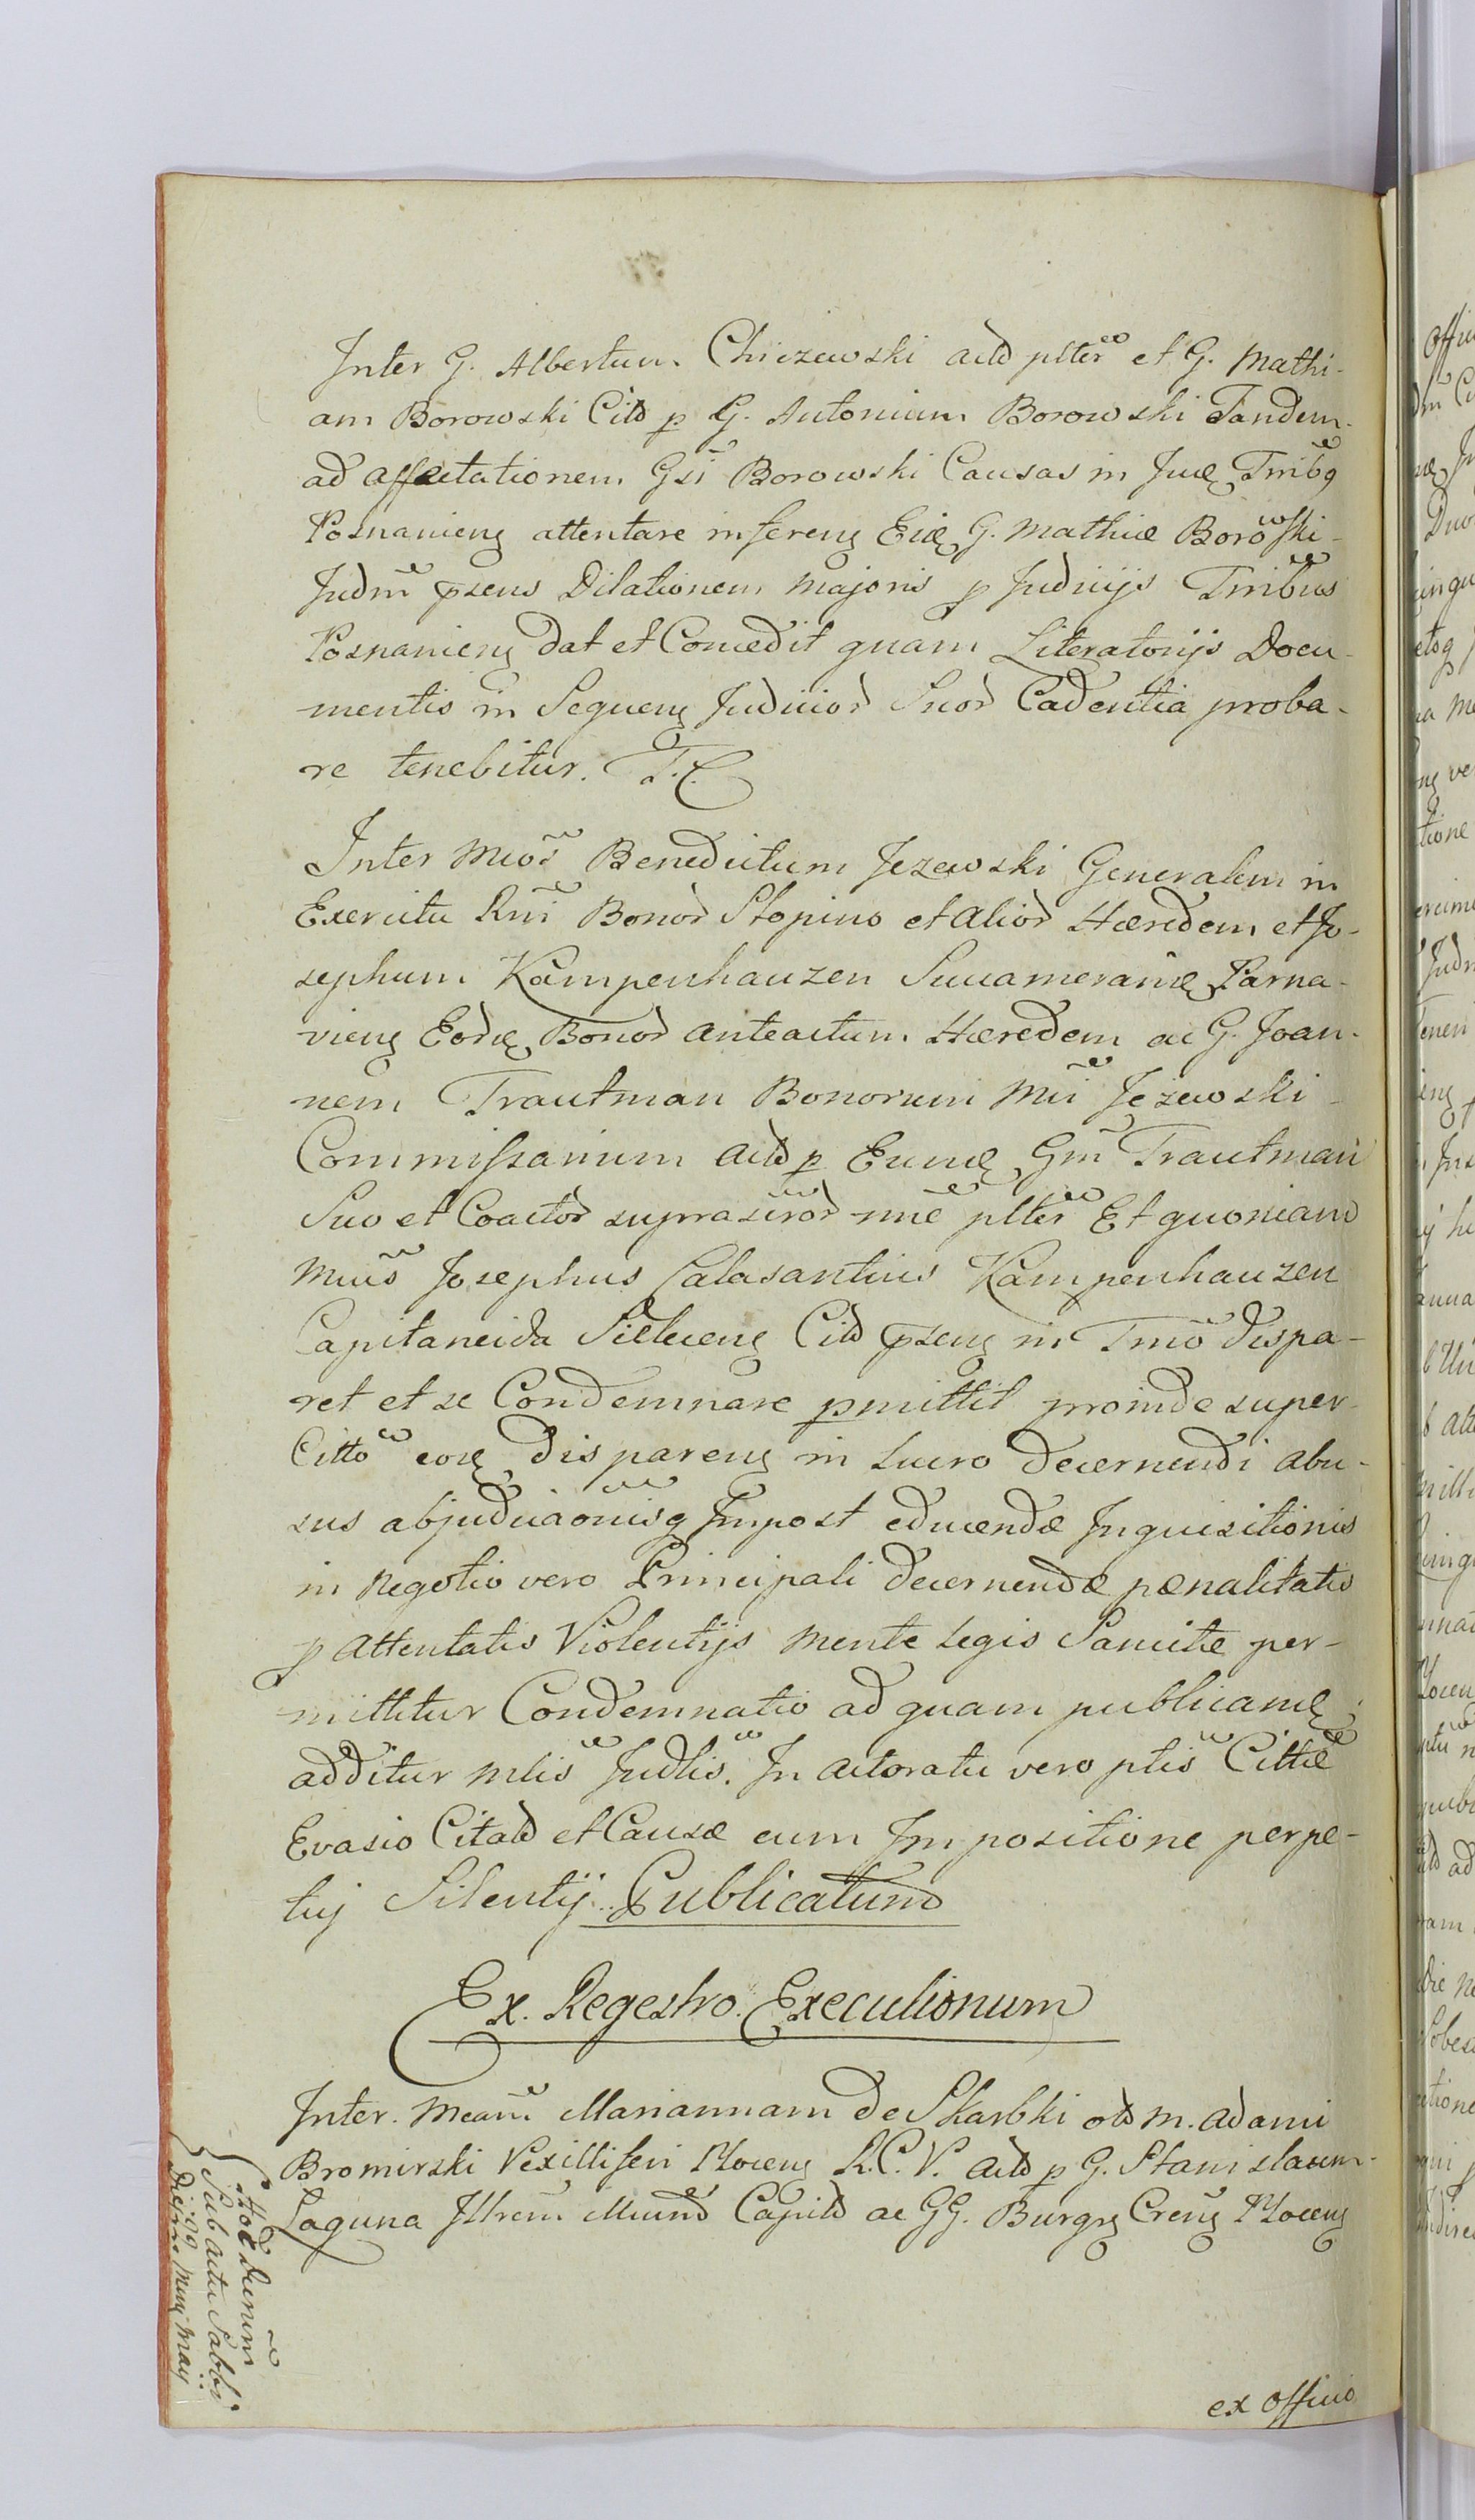 Inter G. Albertum Chiczewski actd plter et G. Mathi-
am Borowski Citd p G. Antonium Borowski Tandem
ad affectationem Gsi Borowski Causas in Jure Tribq
Posnanieng attentare inferens Eide G. Mathiæ Borowski
Judm pseus Dilationem Majoris p Judicijs Tribus
Posnanieng dat et Concedit quam Literatorijs Docu-
mentis in Sequeng Judiciod Suod Cadentia proba-
re tenebitur. T.C.
Inter Mcos Benedictum Jezewski Generalem in
Exercitu Rni Bonod Stopino et aliod Hæredem et Jo-
sephum Kampenhauzen Succameraride Parna-
vieng Eorde Bonod anteactum Hæredem ac G. Joan-
nem Trautman Bonorum Mci Jezewski
Commissarium actd p Eunde Gm Trautman
Suo et Coactod suprascrod nne plter Et quoniam
Mcus Josephus Calasantius Kampenhauzen
Capitaneida Sielceng Citd pseng in Tmo dispa-
ret et se Condemnare pmittit proinde super
Citto eode dispareng in lucro decernendi abu-
sus abjudicaonisq Impost educendæ Inquisitionis
in Negotio vero Principali decernendæ pænalitatis
p attentatis Violentijs mente legis Sancitæ per-
mittitur Condemnatio ad quam publicande
additur Mlis Judlis. In actoratu vero ptis Cittæ
Evasio Citatd et Causæ cum Impositione perpe-
tuj Silentij Publicatum
Ex Regestro Executionum
Inter Mcam Mariannam de Skarbki old M. Adami
Bromirski Vexilliferi Ploceng R.C.V. actd p G. Stanislaum
Laguna Illrem Mcumd Capitd ac GG. Burgg Creng Ploceng
Hoc
Sub actu Sabbi
Diei
Mey May
ex Officio